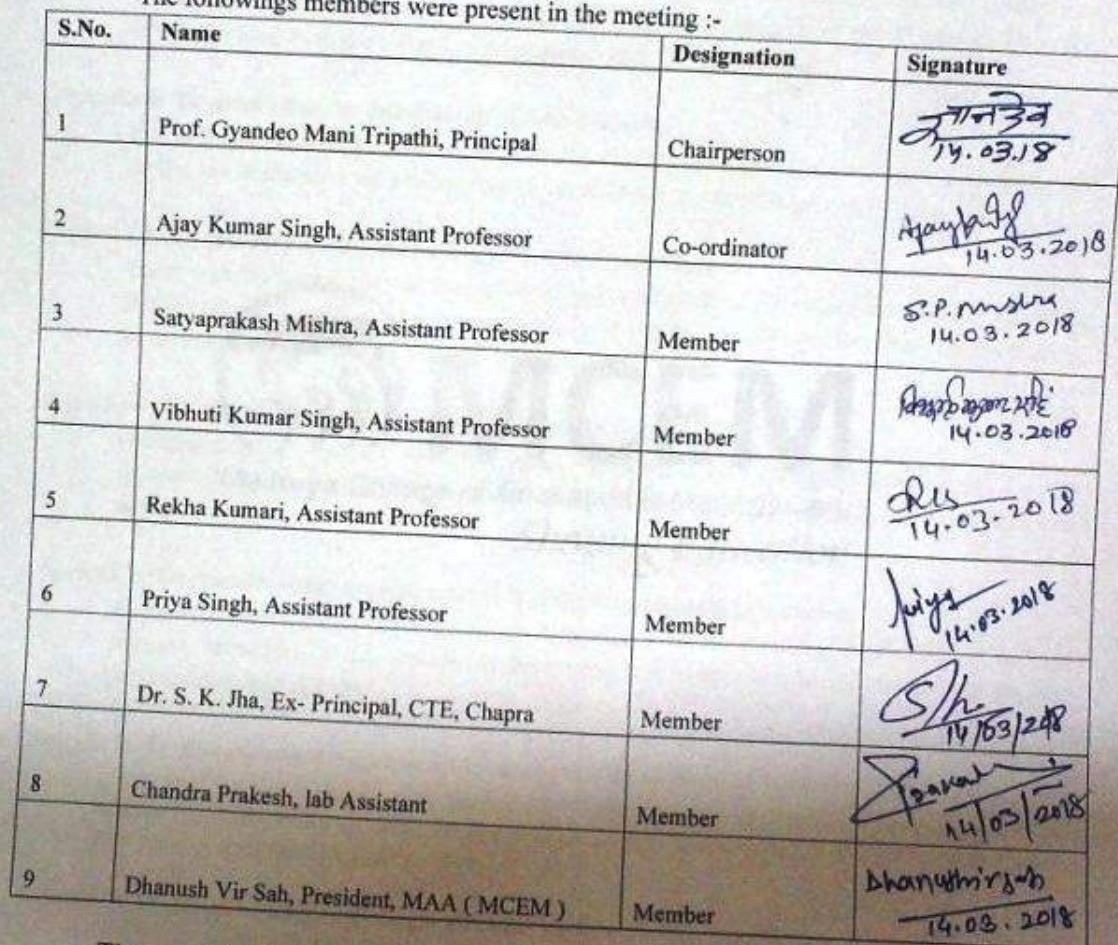 The followings members were present in the meeting :-
S.No. Name Designation Signature
1 Prof. Gyandeo Mani Tripathi, Principal Chairperson ज्ञानदेव
14.03.18
2 Ajay Kumar Singh, Assistant Professor Co-ordinator
14.03.2018
3 Satyaprakash Mishra, Assistant Professor Member S.P. Mishra
14.03.2018
4 Vibhuti Kumar Singh, Assistant Professor Member
14.03.2018
5 Rekha Kumari, Assistant Professor Member
14.03.2018
6 Priya Singh, Assistant Professor Member Priya
14.03.2018
7 Dr. S. K. Jha, Ex- Principal, CTE, Chapra Member
14/03/2018
8 Chandra Prakesh, lab Assistant Member
14/03/2018
9 Dhanush Vir Sah, President, MAA ( MCEM ) Member
14.03.2018